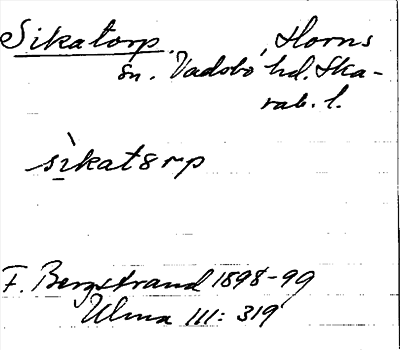 Sikatorp. Horns
sn. Vadsbo hd. Ska-
rab. l.
sìkatɞrp
F. Bergstrand 1898-99
Ulma III: 319